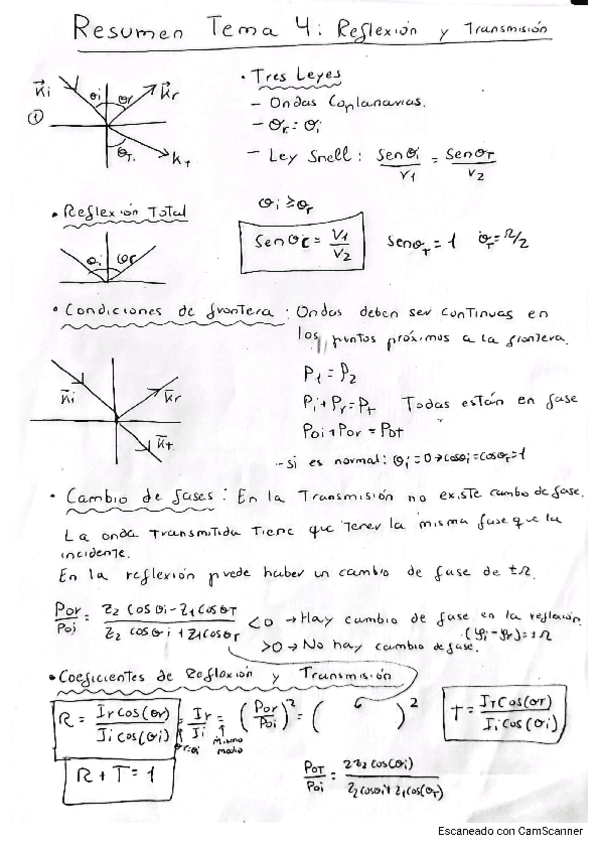 Resumen Tema 4: Reflexión y Transmisión
k⃗i θi θr k⃗r
①
θT kT
• Tres Leyes
- Ondas Coplanarias.
- θr = θi
- Ley Snell: senθi/v1 = senθT/v2
• Reflexión Total
θi θr
θi ≥ θr
senθc = v1/v2 senθT = 1 θT = π/2
• Condiciones de frontera: Ondas deben ser continuas en
los puntos próximos a la frontera.
k⃗i k⃗r
k⃗t
P1 = P2
Pi + Pr = Pt Todas están en fase
Poi + Por = Pot
- si es normal: θi = 0 → cosθi = cosθT = 1
• Cambio de fases: En la Transmisión no existe cambio de fase.
La onda transmitida tiene que tener la misma fase que la
incidente.
En la reflexión puede haber un cambio de fase de ±π.
Por/Poi = (Z2 cosθi - Z1 cosθT)/(Z2 cosθi + Z1 cosθT) <0 → Hay cambio de fase en la reflexión.
(φi - φr) = ±π
>0 → No hay cambio de fase.
• Coeficientes de Reflexión y Transmisión
R = Ir cos(θr)/Ii cos(θi) = Ir/Ii = (Por/Poi)² = ( )² T = IT cos(θT)/Ii cos(θi)
θr=θi mismo
medio
R + T = 1
PoT/Poi = 2Z2 cos(θi)/(Z2 cosθi + Z1 cos(θT))
Escaneado con CamScanner